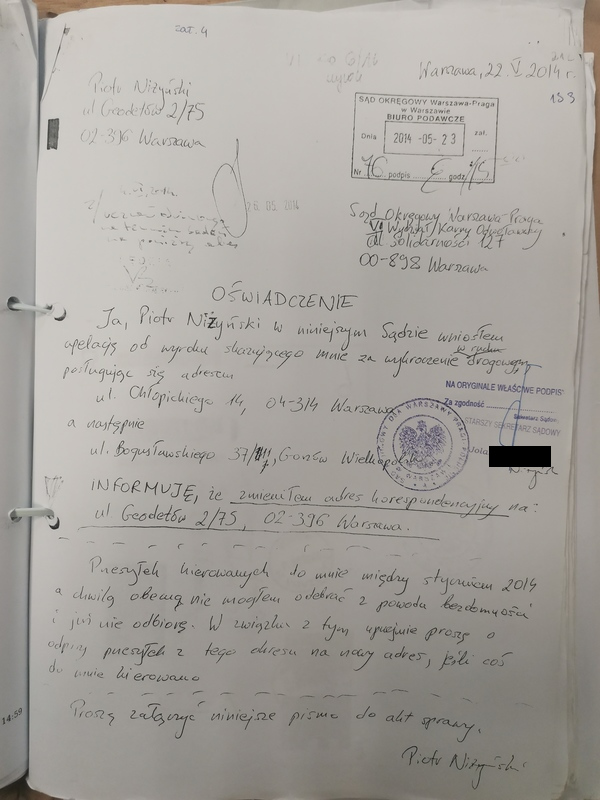 zał. 4
Warszawa, 22. V 2014 r.
133
Piotr Niżyński
ul Geodetów 2/75
02-396 Warszawa
SĄD OKRĘGOWY Warszawa-Praga
w Warszawie
BIURO PODAWCZE
Dnia 2014 -05- 23 zał.
Nr 76 podpis godz
26. 05. 2014
Sąd Okręgowy Warszawa Praga
VI Wydział Karny Odwoławczy
al Solidarności 127
00-898 Warszawa
OŚWIADCZENIE
Ja, Piotr Niżyński w niniejszym Sądzie wniosłem
apelację od wyroku skazującego mnie za wykroczenie w ruchu drogowym,
posługując się adresem
ul. Chłopickiego 14, 04-314 Warszawa
a następnie
ul. Bogusławskiego 37/7, Gorzów Wielkopolski
NA ORYGINALE WŁAŚCIWE PODPISY
Za zgodność
Sekretarz Sądowy
STARSZY SEKRETARZ SĄDOWY
Jola
INFORMUJĘ, że zmieniłem adres korespondencyjny na:
ul Geodetów 2/75, 02-396 Warszawa.
Przesyłek kierowanych do mnie między styczniem 2014
a chwilą obecną nie mogłem odebrać z powodu bezdomności
i już nie odbiorę. W związku z tym uprzejmie proszę o
odpisy przesyłek z tego okresu na nowy adres, jeśli coś
do mnie kierowano
Proszę załączyć niniejsze pismo do akt sprawy.
Piotr Niżyński
14:59